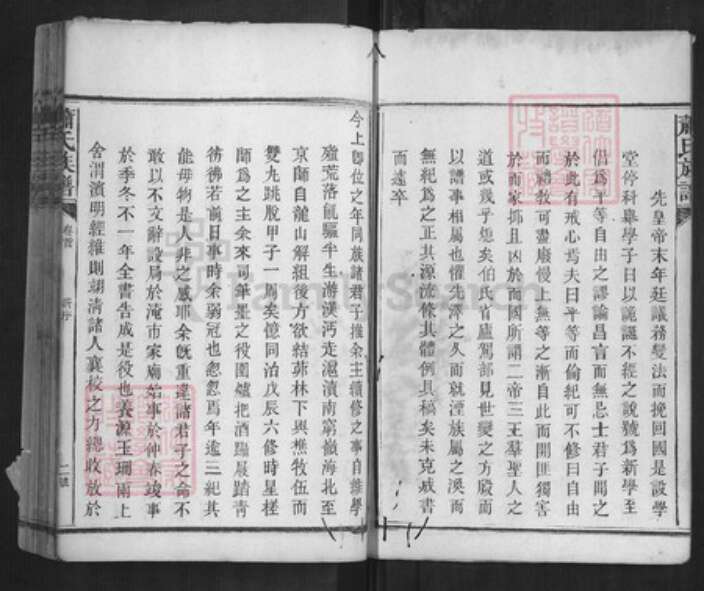 蕭氏族譜
先皇帝末年廷議務變法而挽回國是設學
堂停科舉學子日以詭誕不經之說號爲新學至
倡爲平等自由之謬論昌言而無忌士君子聞之
於此有戒心焉夫曰平等而倫紀可不修曰自由
而禮敎可盡廢慢上無等之漸自此而開匪獨害
於而家抑且凶於而國所謂二帝三王羣聖人之
道或幾乎熄矣伯氏省廬駕部見世變之方殷而
以譜事相屬也懼先澤之久而就湮族屬之渙而
無紀爲之正其源流條其體例具稿矣未克成書
而遽卒
今上卽位之年同族諸君子推余主續修之事自維學
殖荒落飢驅半生游漢沔走滬瀆南窮嶺海北至
京師自龍山解組後方欲結茆林下與樵牧伍而
雙丸跳脫甲子一周矣憶同治戊辰六修時星槎
師爲之主余來司筆墨之役圍爐把酒躡屐踏靑
彷彿若前日事時余弱冠也忽忽焉年逾三紀其
能毋物是人非之感耶余旣重違諸君子之命不
敢以不文辭設局於淹市家廟始事於仲春竣事
於季冬不一年全書告成是役也養源玉珊雨上
舍渭濱明經維則翊淸諸人襄校之方總收放於
蕭氏族譜
卷首
新序
二
FamilySearch